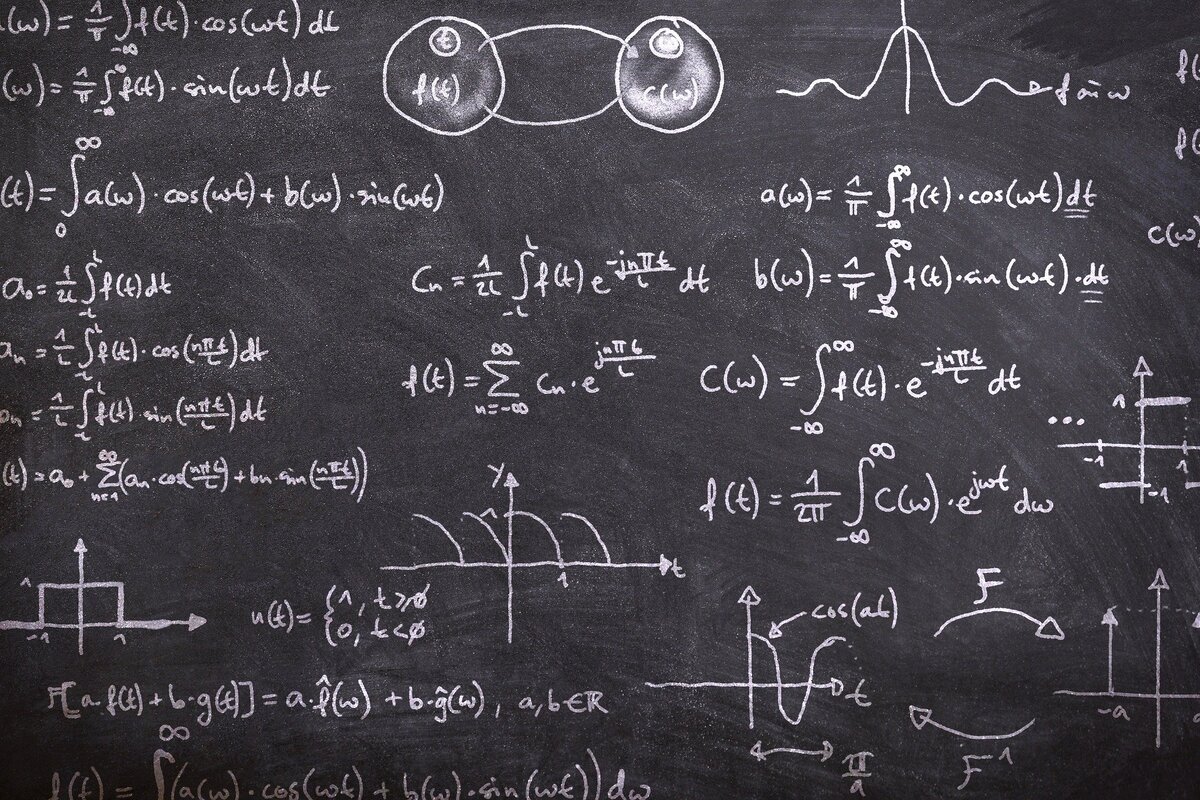 (ω) = 1/π ∫_{-∞} f(t)·cos(ωt) dt
(ω) = 1/π ∫_{-∞}^{∞} f(t)·sin(ωt) dt
t
f(t)
c(ω)
f an ω
f(
f(
(t) = ∫_0^∞ a(ω)·cos(ωt) + b(ω)·sin(ωt)
a(ω) = 1/π ∫_{-∞}^{∞} f(t)·cos(ωt) dt
c(ω)
b(ω) = 1/π ∫_{-∞}^{∞} f(t)·sin(ωt)·dt
a_0 = 1/2L ∫_{-L}^{L} f(t) dt
C_n = 1/2L ∫_{-L}^{L} f(t) e^{-jnπt/L} dt
a_n = 1/L ∫_{-L}^{L} f(t)·cos(nπt/L) dt
f(t) = ∑_{n=-∞}^{∞} C_n·e^{jnπt/L}
C(ω) = ∫_{-∞}^{∞} f(t)·e^{-jnπt/L} dt
b_n = 1/L ∫_{-L}^{L} f(t)·sin(nπt/L) dt
...
1
-1
1
-1
(t) = a_0 + ∑_{n=1}^{∞} (a_n·cos(nπt/L) + b_n·sin(nπt/L))
f(t) = 1/2π ∫_{-∞}^{∞} C(ω)·e^{jωt} dω
y
1
1
t
1
-1
1
u(t) = {1, t≥0
0, t<0
cos(at)
t
π/a
F
F^-1
-a
F[a·f(t) + b·g(t)] = a·f̂(ω) + b·ĝ(ω), a,b∈ℝ
f(t) = ∫^∞ (a(ω)·cos(ωt) + b(ω)·sin(ωt)) dω